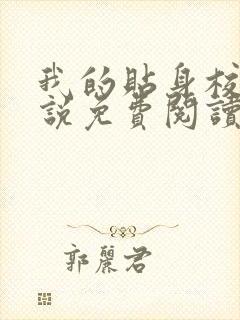 我的貼身校
說免費閱讀
郭麗君